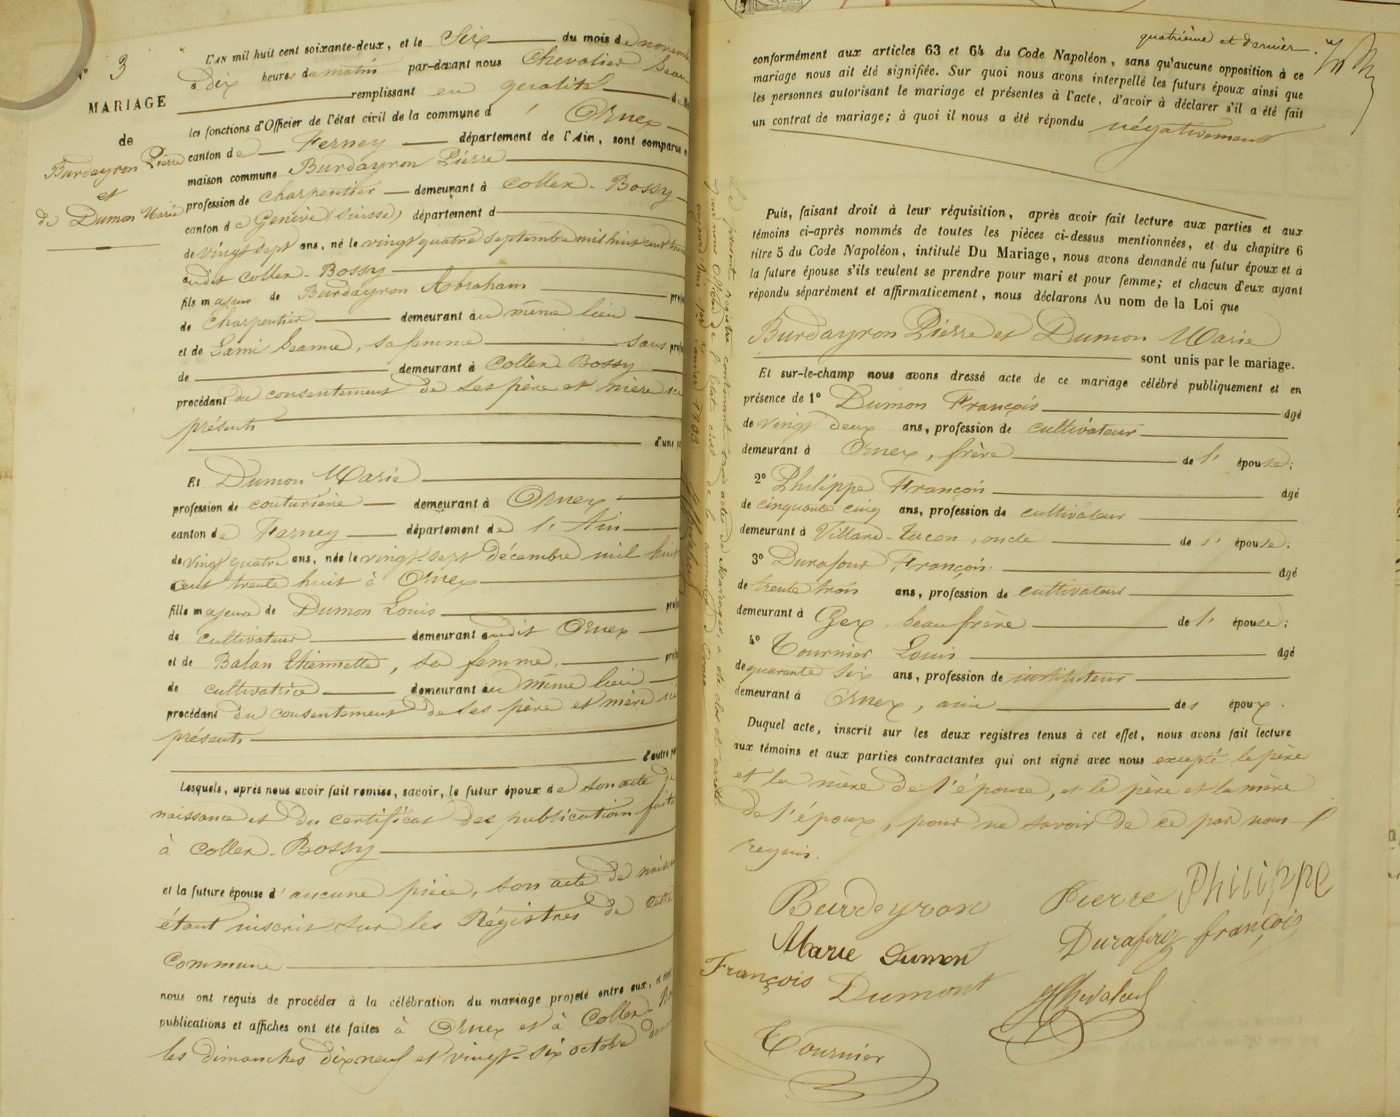 N° 3
MARIAGE
de
Burdayron Pierre
et
de Dumon Marie
L'an mil huit cent soixante-deux, et le Six du mois de novem
à dix heures du matin par-devant nous Chevalier Jean
remplissant en qualité d
les fonctions d'Officier de l'état civil de la commune d' Ornex
canton de Ferney département de l'Ain, sont comparus
maison commune Burdayron Pierre
profession de charpentier demeurant à Collex-Bossy
canton de Genève (Suisse) département d
de vingt sept ans, né le vingt quatre septembre mil huit cent
audit Collex-Bossy
fils majeur de Burdayron Abraham
de charpentier demeurant au même lieu
et de Lami Jeanne, sa femme sans
de demeurant à Collex Bossy
procédant du consentement de ses père et mère
présents
d'une
Et Dumon Marie
profession de couturière demeurant à Ornex
canton de Ferney département de l'Ain
de vingt quatre ans, née le vingt-sept décembre mil huit
cent trente huit à Ornex
fille majeure de Dumon Louis
de cultivateur demeurant audit Ornex
et de Balan Etiennette, sa femme,
de cultivatrice demeurant au même lieu
procédant du consentement de ses père et mère
présents
d'autre
Lesquels, après nous avoir fait remise, savoir, le futur époux de son acte de
naissance et du certificat des publications faites
à Collex-Bossy
et la future épouse d'aucune pièce, son acte de
étant inscrit sur les Régistres de cette
Commune
nous ont requis de procéder à la célébration du mariage projeté entre eux,
publications et affiches ont été faites à Ornex et à Collex-
les dimanches dix neuf et vingt-six octobre
quatrième et dernier.
conformément aux articles 63 et 64 du Code Napoléon, sans qu'aucune opposition à ce
mariage nous ait été signifiée. Sur quoi nous avons interpellé les futurs époux ainsi que
les personnes autorisant le mariage et présentes à l'acte, d'avoir à déclarer s'il a été fait
un contrat de mariage; à quoi il nous a été répondu négativement
Puis, faisant droit à leur réquisition, après avoir fait lecture aux parties et aux
témoins ci-après nommés de toutes les pièces ci-dessus mentionnées, et du chapitre 6
titre 5 du Code Napoléon, intitulé Du Mariage, nous avons demandé au futur époux et à
la future épouse s'ils veulent se prendre pour mari et pour femme; et chacun d'eux ayant
répondu séparément et affirmativement, nous déclarons Au nom de la Loi que
Burdayron Pierre et Dumon Marie
sont unis par le mariage.
Et sur-le-champ nous avons dressé acte de ce mariage célébré publiquement et en
présence de 1° Dumon François âgé
de vingt deux ans, profession de cultivateur
demeurant à Ornex, frère de l' épouse;
2° Philippe François âgé
de cinquante cinq ans, profession de cultivateur
demeurant à Villard-Tacon, oncle de l' épouse;
3° Durafour François âgé
de trente trois ans, profession de cultivateur
demeurant à Gex, beau frère de l' épouse;
4° Tournier Louis âgé
de quarante six ans, profession de instituteur
demeurant à Ornex, ami des époux.
Duquel acte, inscrit sur les deux registres tenus à cet effet, nous avons fait lecture
aux témoins et aux parties contractantes qui ont signé avec nous excepté le père
et la mère de l'épouse, et le père et la mère
de l'époux, pour ne savoir de ce par nous
requis.
Burdeyron Pierre Philippe
Marie Dumon Durafour françois
François Dumont Chevalier
Tournier